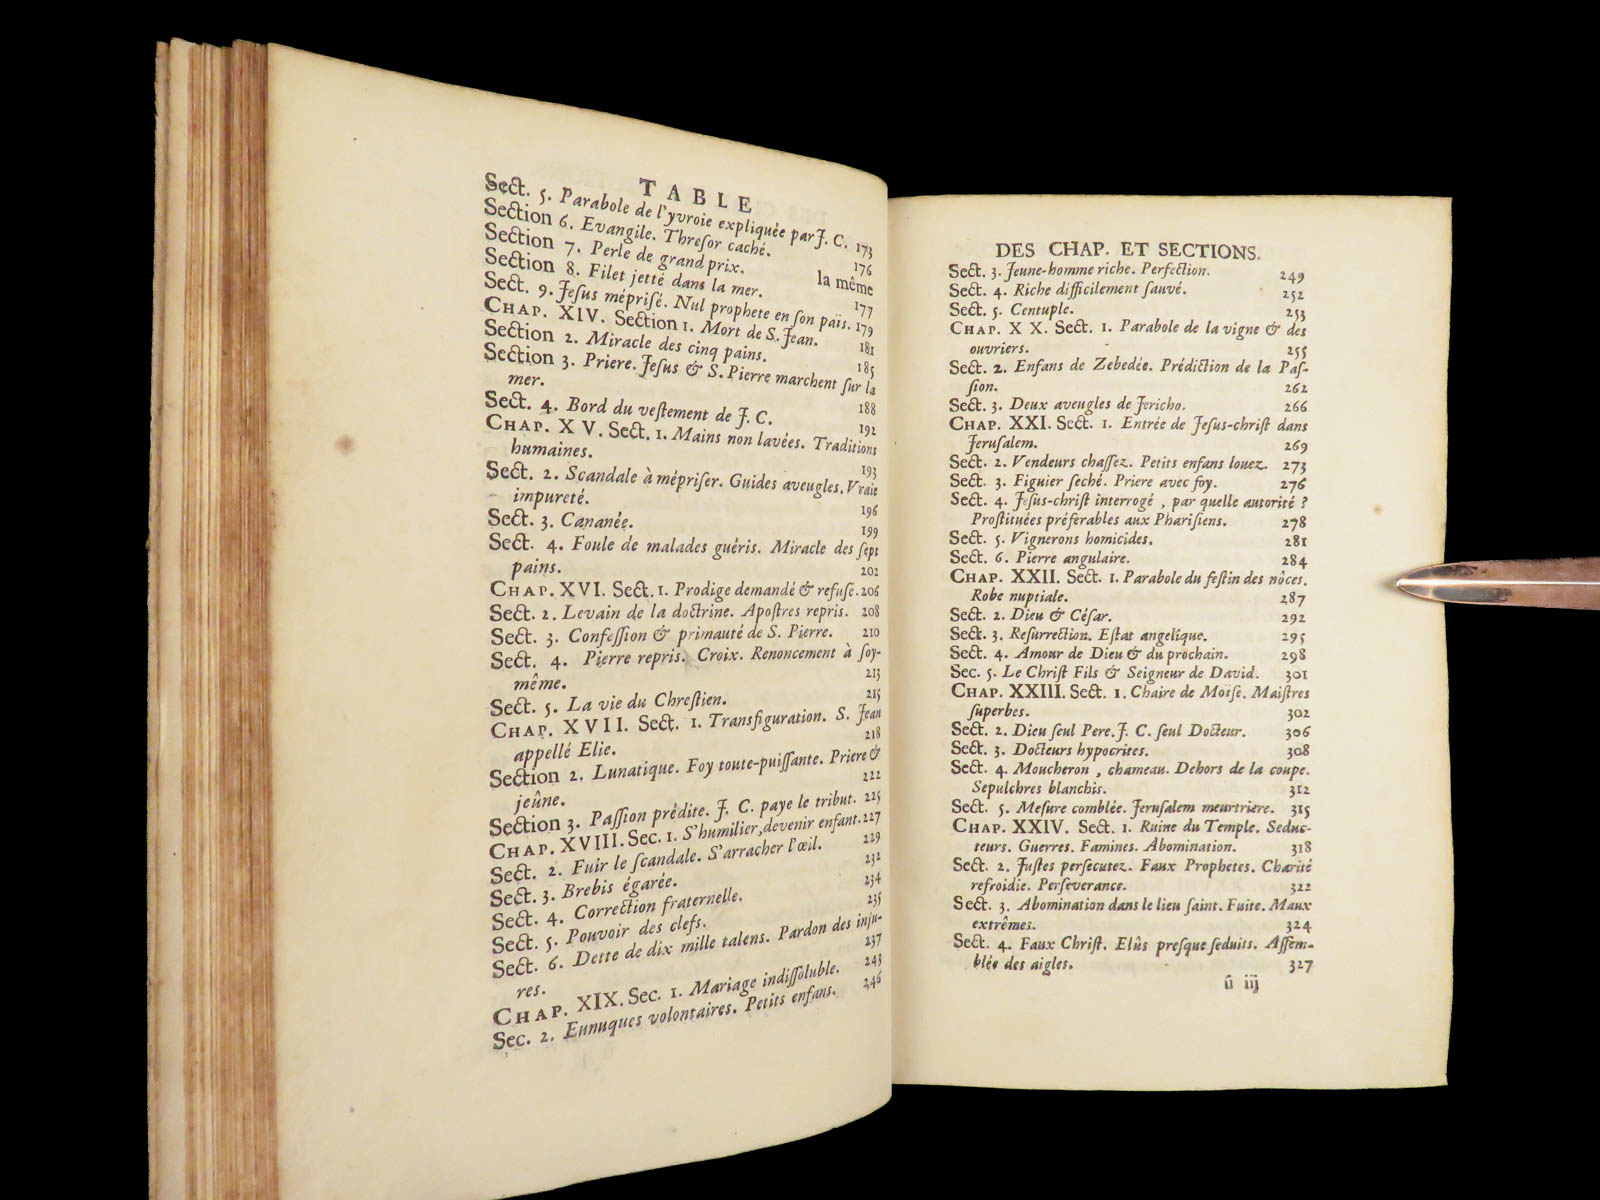 TABLE
Sect. 5. Parabole de l'yvroie expliquée par J. C. 173
Section 6. Evangile. Threſor caché. 176
Section 7. Perle de grand prix. la même
Section 8. Filet jetté dans la mer. 177
Sect. 9. Jeſus mépriſé. Nul prophete en ſon païs. 179
CHAP. XIV. Section 1. Mort de S. Jean. 181
Section 2. Miracle des cinq pains. 185
Section 3. Priere. Jeſus & S. Pierre marchent ſur la
mer. 188
Sect. 4. Bord du veſtement de J. C. 192
CHAP. XV. Sect. 1. Mains non lavées. Traditions
humaines. 193
Sect. 2. Scandale à mépriſer. Guides aveugles. Vraie
impureté. 196
Sect. 3. Cananée. 199
Sect. 4. Foule de malades guéris. Miracle des ſept
pains. 202
CHAP. XVI. Sect. 1. Prodige demandé & refuſe. 206
Sect. 2. Levain de la doctrine. Apoſtres repris. 208
Sect. 3. Confeſſion & primauté de S. Pierre. 210
Sect. 4. Pierre repris. Croix. Renoncement à ſoy-
même. 213
Sect. 5. La vie du Chreſtien. 215
CHAP. XVII. Sect. 1. Transfiguration. S. Jean
appellé Elie. 218
Section 2. Lunatique. Foy toute-puiſſante. Priere &
jeûne. 222
Section 3. Paſſion prédite. J. C. paye le tribut. 225
CHAP. XVIII. Sec. 1. S'humilier, devenir enfant. 227
Sect. 2. Fuir le ſcandale. S'arracher l'œil. 229
Sect. 3. Brebis égarée. 232
Sect. 4. Correction fraternelle. 234
Sect. 5. Pouvoir des clefs. 235
Sect. 6. Dette de dix mille talens. Pardon des inju-
res. 237
CHAP. XIX. Sec. 1. Mariage indiſſoluble. 243
Sec. 2. Eunuques volontaires. Petits enfans. 246
DES CHAP. ET SECTIONS.
Sect. 3. Jeune-homme riche. Perfection. 249
Sect. 4. Riche difficilement ſauvé. 252
Sect. 5. Centuple. 253
CHAP. XX. Sect. 1. Parabole de la vigne & des
ouvriers. 255
Sect. 2. Enfans de Zebedée. Prédiction de la Paſ-
ſion. 262
Sect. 3. Deux aveugles de Jericho. 266
CHAP. XXI. Sect. 1. Entrée de Jeſus-chriſt dans
Jeruſalem. 269
Sect. 2. Vendeurs chaſſez. Petits enfans louez. 273
Sect. 3. Figuier ſeché. Priere avec foy. 276
Sect. 4. Jeſus-chriſt interrogé, par quelle autorité ?
Proſtituées préferables aux Phariſiens. 278
Sect. 5. Vignerons homicides. 281
Sect. 6. Pierre angulaire. 284
CHAP. XXII. Sect. 1. Parabole du feſtin des nôces.
Robe nuptiale. 287
Sect. 2. Dieu & Céſar. 292
Sect. 3. Reſurrection. Eſtat angelique. 295
Sect. 4. Amour de Dieu & du prochain. 298
Sec. 5. Le Chriſt Fils & Seigneur de David. 301
CHAP. XXIII. Sect. 1. Chaire de Moïſe. Maiſtres
ſuperbes. 302
Sect. 2. Dieu ſeul Pere. J. C. ſeul Docteur. 306
Sect. 3. Docteurs hypocrites. 308
Sect. 4. Moucheron, chameau. Dehors de la coupe.
Sepulchres blanchis. 312
Sect. 5. Meſure comblée. Jeruſalem meurtriere. 315
CHAP. XXIV. Sect. 1. Ruine du Temple. Seduc-
teurs. Guerres. Famines. Abomination. 318
Sect. 2. Juſtes perſecutez. Faux Prophetes. Charité
refroidie. Perſeverance. 322
Sect. 3. Abomination dans le lieu ſaint. Fuite. Maux
extrêmes. 324
Sect. 4. Faux Chriſt. Elûs preſque ſeduits. Aſſem-
blée des aigles. 327
û iij